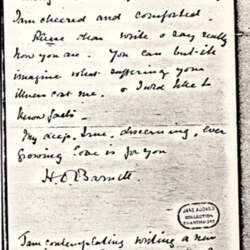 I am cheered and comforted.
Please dear write & say really
how you are. You can but
imagine what suffering your
illness cost me. & I wd like to
know facts.
My deep, true, discerning, ever
growing love is for you
H O Barnett
JANE ADDAMS
COLLECTION
I am contemplating writing a new